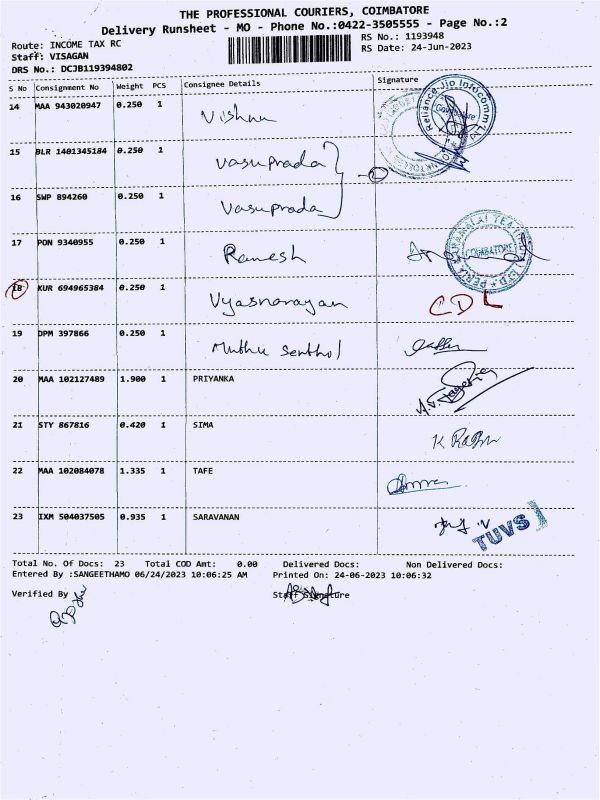 THE PROFESSIONAL COURIERS, COIMBATORE
Delivery Runsheet - MO - Phone No.:0422-3505555 - Page No.:2
Route: INCOME TAX RC RS No.: 1193948
Staff: VISAGAN RS Date: 24-Jun-2023
DRS No.: DCJB119394802
S No Consignment No Weight PCS Consignee Details Signature
14 MAA 943020947 0.250 1 Vishnu Reliance Jio Infocomm
15 BLR 1401345184 0.250 1 Vasuprada
16 SWP 894260 0.250 1 Vasuprada
17 PON 9340955 0.250 1 Ramesh COIMBATORE
18 KUR 694965384 0.250 1 Vyasnarayan CDL
19 DPM 397866 0.250 1 Muthu Senthol
20 MAA 102127489 1.900 1 PRIYANKA
21 STY 867816 0.420 1 SIMA
22 MAA 102084078 1.335 1 TAFE
23 IXM 504037505 0.935 1 SARAVANAN TUVS
Total No. Of Docs: 23 Total COD Amt: 0.00 Delivered Docs: Non Delivered Docs:
Entered By :SANGEETHAMO 06/24/2023 10:06:25 AM Printed On: 24-06-2023 10:06:32
Verified By Staff Signature